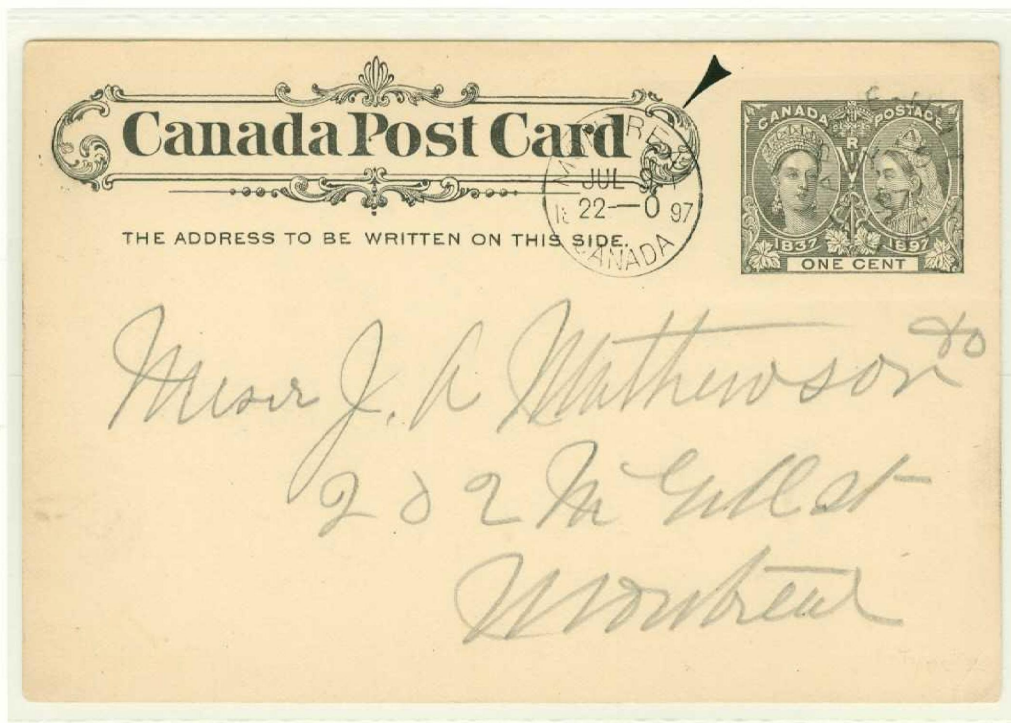 Canada Post Card
THE ADDRESS TO BE WRITTEN ON THIS SIDE.
MONTREAL
JUL 9
18 22—0 97
CANADA
CANADA POSTAGE
V R I
1837 1897
ONE CENT
Messr J. A Mathewson
202 Mc Gill St
Montreal